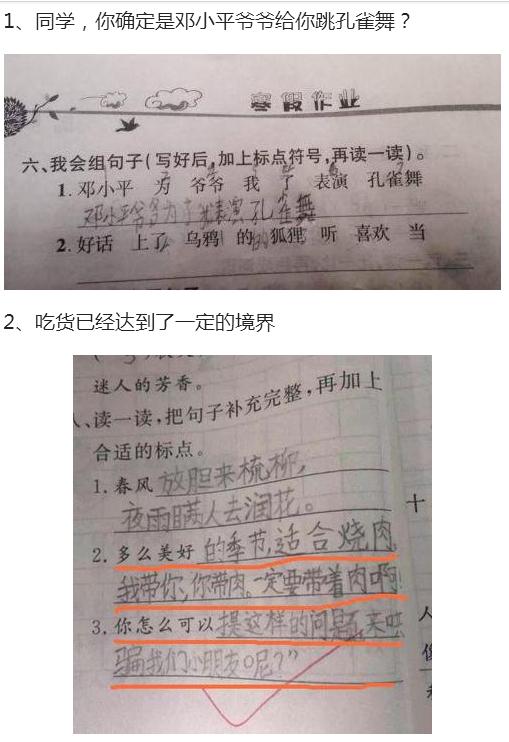 1、同学，你确定是邓小平爷爷给你跳孔雀舞？
寒假作业
六、我会组句子(写好后,加上标点符号,再读一读)。
1. 邓小平 为 爷爷 我 了 表演 孔雀舞
邓小平爷爷为了我表演孔雀舞
2. 好话 上了 乌鸦 的 狐狸 听 喜欢 当
2、吃货已经达到了一定的境界
迷人的芳香。
、读一读,把句子补充完整,再加上
合适的标点。
1. 春风放胆来梳柳,
夜雨瞒人去润花。
2. 多么美好的季节,适合烧肉,
我带你,你带肉。一定要带着肉啊!
3. 你怎么可以提这样的问题,来
骗我们小朋友呢?”
十